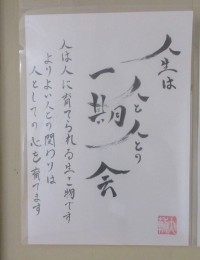 人生は
人と人との
一期一会
人は人に育てられる生き物です
よりよい人との関わりは
人としての心を育てます